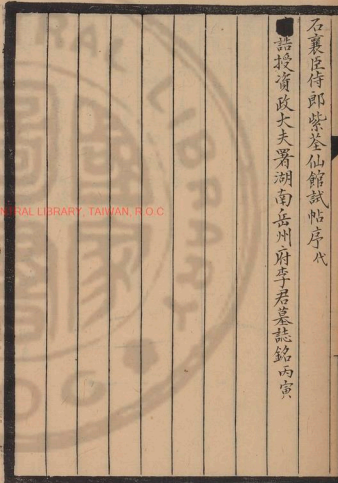 石襄臣侍郎紫荃仙館試帖序代
誥授資政大夫署湖南岳州府李君墓誌銘丙寅
NTRAL LIBRARY, TAIWAN, R.O.C